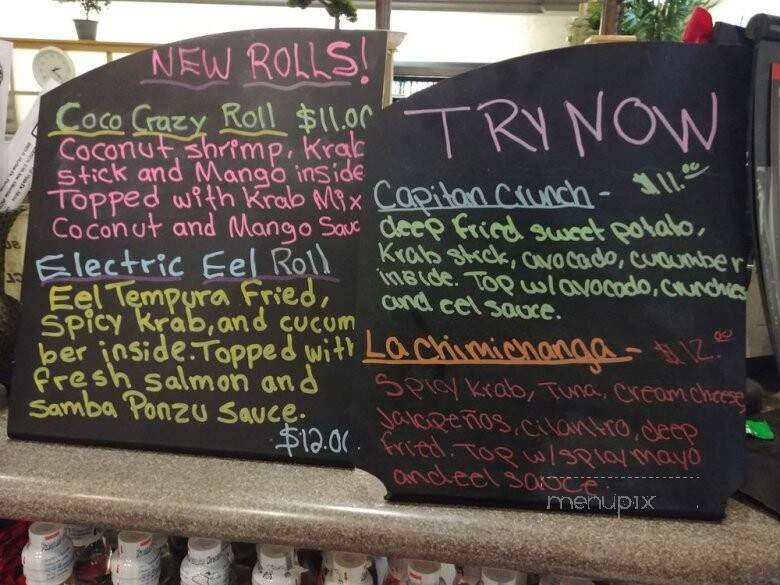 NEW ROLLS!
Coco Crazy Roll $11.00
Coconut shrimp, Krab
stick and Mango inside
Topped with Krab Mix
Coconut and Mango Sauc
Electric Eel Roll
Eel Tempura Fried,
Spicy Krab, and cucum
ber inside. Topped with
fresh salmon and
Samba Ponzu Sauce.
$12.00
TRY NOW
Capitan Crunch - $11.00
deep fried sweet potato,
Krab stick, avocado, cucumber
inside. Top w/avocado, crunchies
and eel sauce.
La Chimichanga - $12.00
Spicy Krab, Tuna, cream cheese,
Jalapeños, cilantro, deep
fried. Top w/spicy mayo
and eel sauce.
menupix